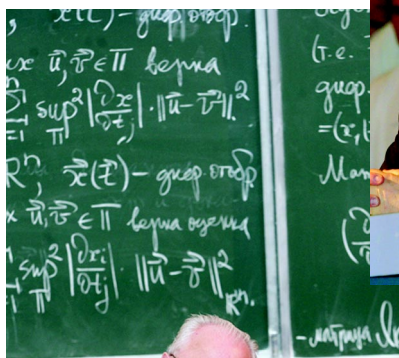 , x⃗(t⃗) – диф. отобр.
u⃗, v⃗ ∈ Π верна
sup² |∂x/∂t_j| · ||u⃗ – v⃗||².
Π
R^n, x⃗(t⃗) – диф. отобр.
u⃗, v⃗ ∈ Π верна оценка
sup² |∂x_i/∂t_j| · ||u⃗ – v⃗||²_{R^n}.
Π
(т.е.
диф.
=(x,
Мат
– матрица